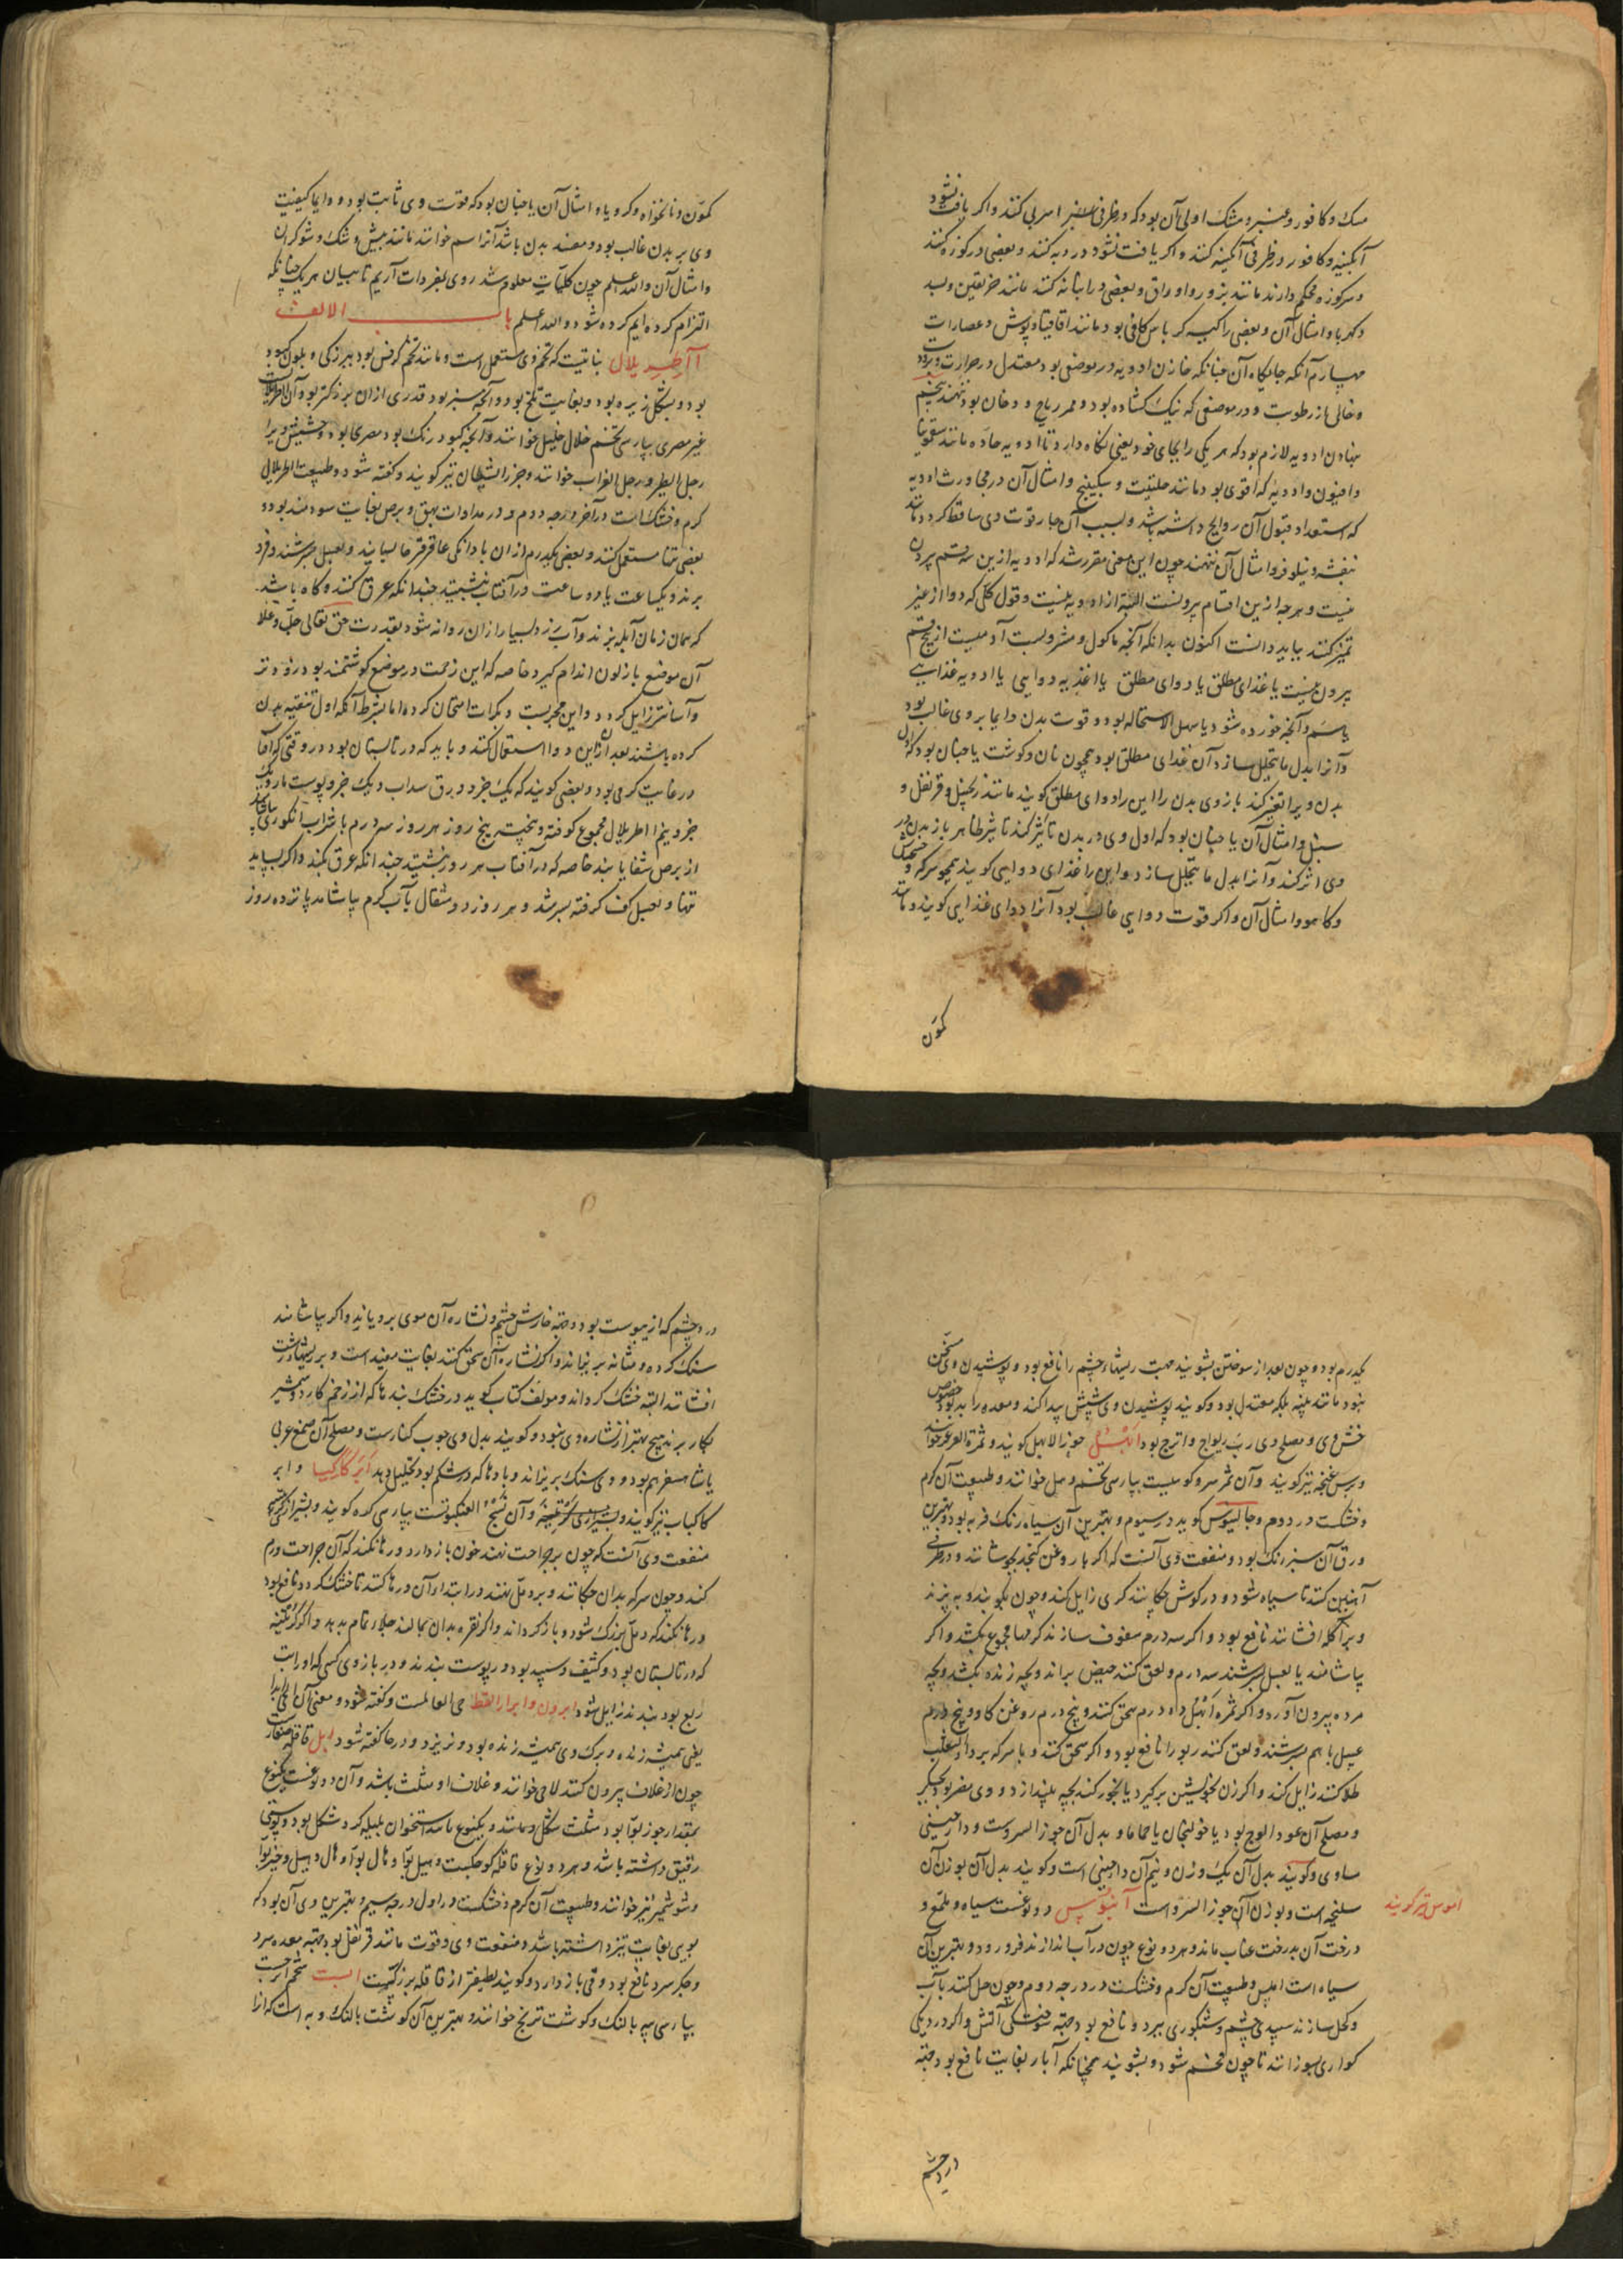 مسک و کافور و عنبر و مشک اولی آن بود که در ظرفی اسربی کنند و اکر یافت نشود
آبکینه و کافور در ظرفی آبکینه کنند و اکر یافت نشود در دبه کنند و بعضی در کوزه کنند
و سر کوزه محکم دارند مانند بزور و اوراق و بعضی در انبانه کنند مانند خربقین و بسد
و کهربا و امثال آن و بعضی را کیسه کرباس کافی بود مانند اقاقیا و پوش و عصارات
چهارم آنکه جایکاه آن چنانکه خازن ادویه در موضعی بود معتدل در حرارت و برودت
و خالی از رطوبت و در موضعی که نیک کشاده بود و ممر ریاح و دخان بود ننهند پنجم
نهادن ادویه لازم بود که هر یکی را بجای خود یعنی نکاه دارد تا ادویه حاده مانند سقمونیا
و افیون و ادویه که قوی بود مانند حلتیت و سکبینج و امثال آن در مجاورت ادویه
که استعداد قبول آن روایح داشته باشد و بسبب آن مجاورت قوت وی ساقط کردد مانند
بنفشه و نیلوفر و امثال آن ننهند چون این معنی مقرر شد که ادویه ازین قسم بیرون
نیست و هر چه ازین اقسام بیرونست البته از ادویه نیست و قول کلی که دوا از غیر
تمیز کنند بباید دانست اکنون بدانکه آنچه ماکول و مشروبست آدمیست از پنج قسم
بیرون نیست یا غذای مطلق یا دوای مطلق یا اغذیه دوایی یا ادویه غذایی
یا سم و آنچه خورده شود یا سهل الاستحاله بود و قوت بدن دایما بر وی غالب بود
و آنرا بدل ما یتحلل سازد آن غذای مطلق بود همچون نان و کوشت یا چنان بود که اول
بدن ویرا تغیر کند باز وی بدن را این را دوای مطلق کویند مانند زنجبیل و قرنفل و
سنبل و امثال آن یا چنان بود که اول وی در بدن تاثیر کند تاثیر ظاهر باز بدن در
وی اثر کند و آنرا بدل ما یتحلل سازد و این را غذای دوایی کویند همچو سرکه و خشخاش
و کاهو و امثال آن و اکر قوت دوایی غالب بود آنرا دوای غذایی کویند مانند
کمون
کمون و نانخواه و کرویا و امثال آن یا چنان بود که قوت وی ثابت بود و دایما کیفیت
وی بر بدن غالب بود و مفسد بدن باشد آنرا سم خوانند مانند بیش و شک و شوکران
و امثال آن والله اعلم چون کلیات معلوم شد روی بمفردات آریم تا بیان هر یک چنانکه
التزام کرده ایم کرده شود والله اعلم باب الالف
آاطریلال نباتیست که تخم وی مستعمل است و مانند تخم کرفس بود ببزرکی و بلون کبود
بود و بشکل زیره بود و بغایت تلخ بود و آنچه سبز بود قدری از ان بزرکتر بود و آن اطریلال
غیر مصری بپارسی تخم خلال خلیل خوانند و آنچه کبود رنک بود مصری بود و حشیش ویرا
رجل الطیر و رجل الغراب خوانند و جزر الشیطان نیز کویند و کفته شود و طبیعت اطریلال
کرم و خشک است در آخر درجه دوم و در مداوات بهق و برص بغایت سودمند بود و
بعضی تنها مستعمل کنند و بعضی یکدرم از ان با دانکی عاقرقرحا بسایند و بعسل بسرشند و فرو
برند و یکساعت یا دو ساعت در آفتاب بنشیند چندانکه عرق کنند و کاه باشد
که همان زمان آبله بزند و آب زرد بسیار از ان روانه شود بقدرت حق تعالی جل و علا
آن موضع باز لون اندام کیرد خاصه که این زحمت در موضع کوشتمند بود زودتر
و آسانتر زایل کردد و این مجربست و بکرات امتحان کرده اما بشرط آنکه اول تنقیه بدن
کرده باشند بعد از ان این دوا استعمال کنند و باید که در تابستان بود در وقتی که آفتاب
در غایت کرمی بود و بعضی کویند که یک جزو ورق سداب و یک جزو پوست مار و یک
جزو نیم اطریلال مجموع کوفته و پخته پنج روز هر روز سه درم با شراب انکوری بیاشامد
از برص شفا یابند خاصه که در آفتاب هر روز بنشیند چندانکه عرق بکند و اکر بساید
تنها و بعسل کف کرفته بسرشد و هر روز دو مثقال بآب کرم بیاشامد پانزده روز
یکدرم بود و چون بعد از سوختن بشویند جهت ریشهاء چشم را نافع بود و پوشیدن وی مسخن
نبود مانند پنبه بلکه معتدل بود و کویند پوشیدن وی شپش پیدا کند و معده را بد بود خصوص
خشن وی و مصلح وی رب ریواج و اترج بود ابهل جوز الابهل کویند و ثمرة العرعر خوانند
و برس غنچه نیز کویند و آن ثمر سرو کوهیست بپارسی تخم وهل خوانند و طبیعت آن کرم
و خشکست در دوم و جالینوس کوید در سیوم و بهترین آن سیاه رنک فربه بود و بهترین
ورق آن سبز رنک بود و منفعت وی آنست که اکر با روغن کنجد بجوشانند و در ظرفی
آهنین کنند تا سیاه شود و در کوش چکانند کری زایل کند و چون بکوبند و بپزند
و بر آکله افشانند نافع بود و اکر سه درم سفوف سازند کرمها مجموع بکشد و اکر
بیاشامند یا بعسل بسرشند سه درم و لعق کنند حیض براند و بچه زنده بکشد و بچه
مرده بیرون آورد و اکر ثمره ابهل ده درم سحق کنند و پنج درم روغن کاو و پنج درم
عسل با هم بسرشند و لعق کنند ربو را نافع بود و اکر سحق کنند و با سرکه بر داء الثعلب
طلا کنند زایل کند و اکر زن بخویشتن برکیرد یا بخور کند بچه بیندازد و وی مضر بود بجکر
و مصلح آن عود الوج بود یا خولنجان یا حماما و بدل آن جوز السروست و دارچینی
مساوی و کویند بدل آن یک وزن و نیم آن دارچینی است و کویند بدل آن بوزن آن
سلیخه است و بوزن آن جوز السرو است آبنوس دو نوعست سیاه و ملمع و
درخت آن بدرخت عناب ماند و هر دو نوع چون در آب اندازند فرو رود و بهترین آن
سیاه است املس و طبیعت آن کرم و خشکست در درجه دوم و چون حل کنند بآب
و کحل سازند سپیدی چشم و شبکوری ببرد و نافع بود جهته سوختکی آتش و اکر در دیکی
کواری بسوزانند تا چون فحم شود و بشویند همچنانکه آبار بغایت نافع بود جهته
ابنوس نیز کویند
درد چشم
درد چشم که از یبوست بود و جهته خارش چشم و نشاره آن موی برویاند و اکر بیاشامند
سنک کرده و مثانه بریزاند و اکر نشاره آن سحق کنند بغایت مفید است و بر ریشهاء زشت
افشانند البته خشک کرداند و مولف کتاب کوید در خشک بندها که از زخم کارد و شمشیر
بکار برند هیچ بهتر از نشاره وی نبود و کویند بدل وی چوب کنارست و مصلح آن صمغ عربی
یا شاه سفرهم بود و وی سنک بریزاند و بادها که در شکم بود تحلیل دهد ابرکاکیا و ابر
کاکیاب نیز کویند و بشیرازی کرتنینه و آن نسج العنکبوتست بپارسی کره کویند و بشیرازی
منفعت وی آنست که چون بر جراحت نهند خون باز دارد و رها نکند که آن جراحت ورم
کند و چون سرکه بدان چکانند و بر دمل نهند در ابتداء آن رها نکند تا خشک کردد نافع بود
و رها نکند که دمل بزرک شود و باز کرداند و اکر نقره بدان بمالند جلاء تمام بدهد و اکر کرتنینه
که در تابستان بود و کثیف و سپید بود در پوست بندند و در بازوی کسی که او را تب
ربع بود بندند زایل شود ابرون و ابرار القط حی العالمست و کفته شود و معنی آن
یعنی همیشه زنده و برک وی همیشه زنده بود و نریزد و در حا کفته شود ابل قاقله صغارست
چون از غلاف بیرون کنند لاچی خوانند و غلاف او مثلث باشد و آن دو نوعست یکنوع
بمقدار جوز بوا بود مثلث شکل و مانند و یکنوع مانند استخوان هلیله کرد شکل بود و پوستی
رقیق داشته باشد و هر دو نوع قاقله کوچکست و هیل بوا و هال بوا و هال و هیل و خیر بوا
و شوشمیر نیز خوانند و طبیعت آن کرم و خشکست در اول درجه سیم و بهترین وی آن بود که
بویی بغایت تیز داشته باشد و منفعت وی و قوت مانند قرنفل بود جهته معده سرد
و جکر سرد نافع بود و قی باز دارد و کویند لطیفتر از قاقله بزرکست است شحم اترجست
بپارسی پیه بالنک و کوشت ترنج خوانند و بهترین آن کوشت بالنک و به است که آنرا